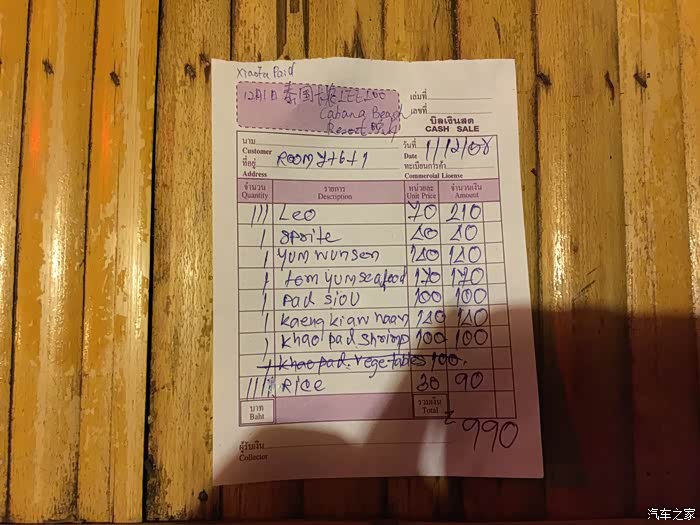 Xiaota Paid
12月1日 泰国
Cabang Beach
Resort
เล่มที่
เลขที่
บิลเงินสด
CASH SALE
นาม
Customer
ที่อยู่
Address
ROOM 7+6+1
วันที่
Date
1/12/08
ทะเบียนการค้า
Commercial License
จำนวน รายการ หน่วยละ จำนวนเงิน
Quantity Description Unit Price Amount
||| Leo 70 210
| Sprite 40 40
| Yum wunsen 140 140
| tom yum seafood 170 170
| Pad siou 100 100
| Kaeng kiaw 140 140
| Khao pad shrimp 100 100
| Khao pad. vegetables 100.
Rice 30 90
บาท
Baht
รวมเงิน
Total
990
ผู้รับเงิน
Collector
汽车之家